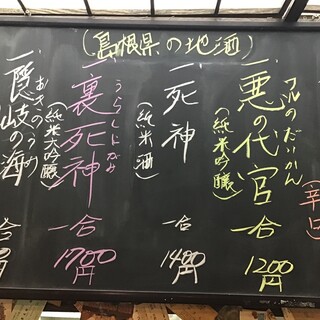 (島根県の地酒)
(辛口)
一悪の代官
ワルのだいかん
(純米吟醸)
一合
1200円
一死神
(純米酒)
一合
1400円
一裏死神
うらしにがみ
(純米大吟醸)
一合
1700円
一隠岐の海
おきのうみ
合
円